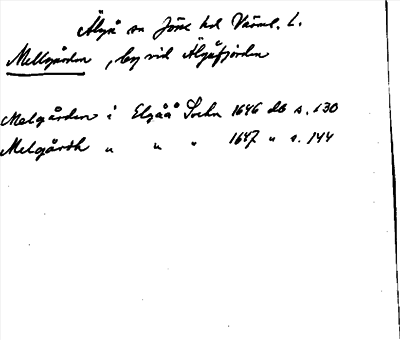 Älgå sn Jösse hd Värml. l.
Mellgården, by vid Älgåfjorden
Melgården i Elgåå Sochn 1646 db s. 130
Melgårdh " " " 1647 " s. 144